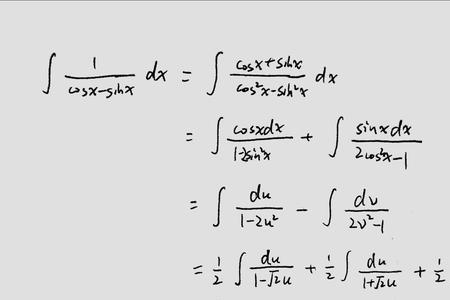 ∫ 1/(cosx-sinx) dx = ∫ (cosx+sinx)/(cos²x-sin²x) dx
= ∫ cosxdx/(1-2sin²x) + ∫ sinxdx/(2cos²x-1)
= ∫ du/(1-2u²) - ∫ dv/(2v²-1)
= 1/2 ∫ du/(1-√2u) + 1/2 ∫ du/(1+√2u) + 1/2